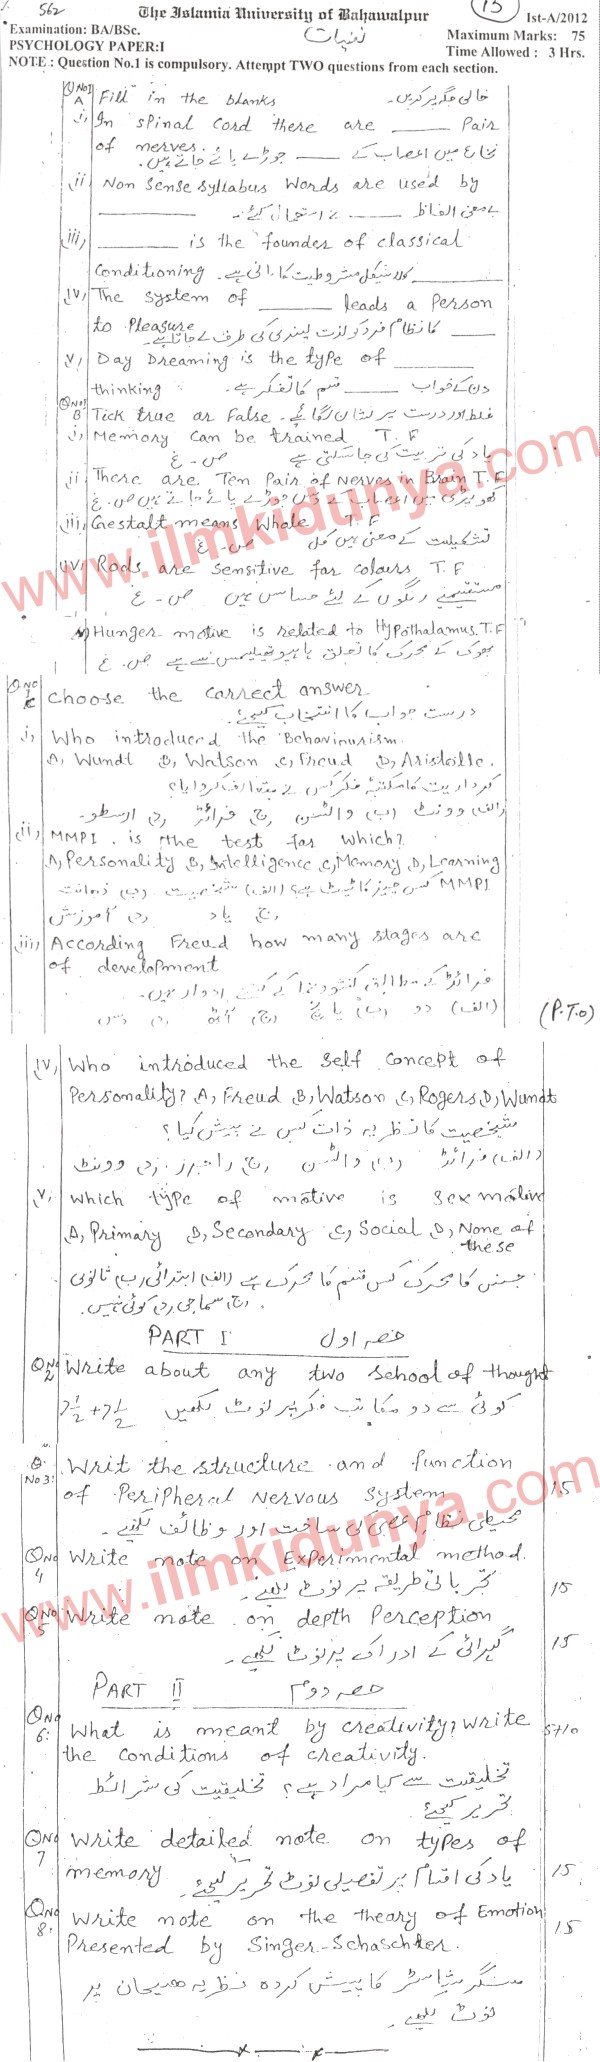 562
The Islamia University of Bahawalpur
13
1st-A/2012
Examination: BA/BSc.
نفسیات
Maximum Marks: 75
PSYCHOLOGY PAPER:I
Time Allowed : 3 Hrs.
NOTE : Question No.1 is compulsory. Attempt TWO questions from each section.
Q No1 A Fill in the blanks خالی جگہ پر کریں۔
i, In spinal cord there are ____ Pair
of nerves.
نخاع میں اعصاب کے ____ جوڑے پائے جاتے ہیں۔
ii, Non sense syllabus words are used by
____
بے معنی الفاظ ____ نے استعمال کئے۔
iii, ____ is the founder of classical
Conditioning ____ کلاسیکل مشروطیت کا بانی ہے۔
iv, The system of ____ leads a Person
to Pleasure ____ کا نظام فرد کو لذت پسندی کی طرف لے جاتا ہے۔
v, Day Dreaming is the type of ____
thinking دن کے خواب ____ قسم کا تفکر ہے۔
Q No1 B Tick true or False. غلط اور درست پر نشان لگائیے۔
i, Memory can be trained T. F
یاد کی تربیت کی جا سکتی ہے ص۔ غ
ii There are Ten Pair of Nerves in Brain T.F
کھوپڑی میں اعصاب کے دس جوڑے پائے جاتے ہیں ص۔ غ
iii, Gestalt means Whole T. F
تشکیلت کے معنی ہیں کل ص۔ غ
iv, Rods are sensitive for colours T.F
مستقیمے رنگوں کے لئے حساس ہیں ص۔ غ
v, Hunger motive is related to Hypothalamus. T.F
بھوک کے محرک کا تعلق ہائپوتھیلیمس سے ہے ص۔ غ
Q No 1 C Choose the correct answer
درست جواب کا انتخاب کیجئے؟
i, Who introduced the Behaviourism.
A, Wundt B, Watson C, Freud D, Aristotle.
کرداریت کا مکتبہ فکر کس نے متعارف کروایا؟
(الف) وونٹ (ب) واٹسن (ج) فرائڈ (د) ارسطو۔
(ii) MMPI is the test for which?
A, Personality B, Intelligence C, Memory D, Learning
MMPI کس چیز کا ٹیسٹ ہے؟ (الف) شخصیت (ب) ذہانت
(ج) یاد (د) آموزش
iii, According Freud how many stages are
of development
فرائڈ کے مطابق نشوونما کے کتنے ادوار ہیں۔
(الف) دو (ب) پانچ (ج) آٹھ (د) دس
(P.T.O)
iv, Who introduced the self concept of
Personality? A, Freud B, Watson C, Rogers D, Wundt
شخصیت کا نظریہ ذات کس نے پیش کیا؟
(الف) فرائڈ (ب) واٹسن (ج) راجرز (د) وونٹ
v, which type of motive is sex motive
A, Primary B, Secondary C, Social D, None of
these
جنس کا محرک کس قسم کا محرک ہے (الف) ابتدائی (ب) ثانوی
(ج) سماجی (د) کوئی نہیں۔
PART I حصہ اول
Q No 2 Write about any two school of thought
کوئی سے دو مکاتب فکر پر نوٹ لکھیں 7½+7½
Q No 3: Writ the structure and function
of Peripheral Nervous System 15
محیطی نظام عصبی کی ساخت اور وظائف لکھئے۔
Q No 4 Write note on Experimental method.
تجرباتی طریقہ پر نوٹ لکھیے۔ 15
Q No 5 Write note on depth Perception
گہرائی کے ادراک پر نوٹ لکھیے۔ 15
PART II حصہ دوم
Q No 6: What is meant by creativity, write 5+10
the conditions of creativity.
تخلیقیت سے کیا مراد ہے؟ تخلیقیت کی شرائط
تحریر کیجئے۔
Q No 7 Write detailed note on types of
memory یاد کی اقسام پر تفصیلی نوٹ تحریر کیجئے۔ 15
Q No 8. Write note on the theory of Emotion 15
Presented by Singer-Schaschter.
سنگر شیاسٹر کا پیش کردہ نظریہ ہیجان پر
نوٹ لکھیے۔
www.ilmkidunya.com
www.ilmkidunya.com